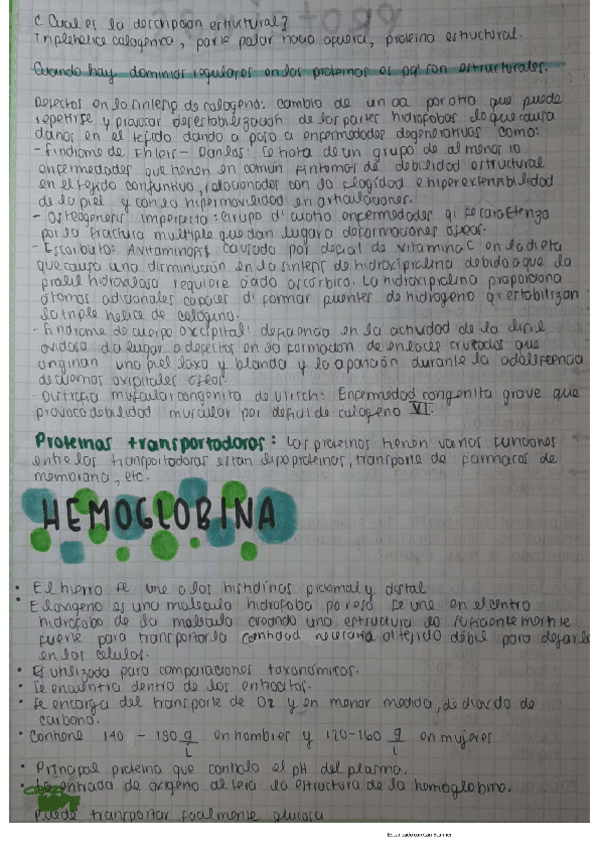 ¿Cual es la descripcion estructural?
Triplehelice colagenica, parte polar hacia afuera, proteina estructural.
Cuando hay dominios regulares en las proteinas es pq son estructurales.
Defectos en la sintesis de colageno: cambio de un aa por otro que puede
repetirse y provocar desestabilizacion de las partes hidrofobas lo que causa
daños en el tejido dando a paso a enfermedades degenerativas como:
- Sindrome de Ehlers - Danlos: Se trata de un grupo de al menos 10
enfermedades que tienen en común sintomas de debilidad estructural
en el tejido conjuntivo, relacionados con la fragilidad e hiperextensibilidad
de la piel y con la hipermovilidad en articulaciones.
- Osteogenesis imperfecta: Grupo d' cuatro enfermedades q' se caracteriza
por la fractura multiple que dan lugar a deformaciones oseas.
- Escorbuto: Avitaminosis causada por deficit de vitamina C en la dieta
que causa una disminución en la sintesis de hidroxiprolina debido a que la
prolil hidroxilasa requiere ácido ascórbico. La hidroxiprolina proporciona
átomos adicionales capaces d' formar puentes de hidrogeno q' estabilizan
la triple helice de colageno.
- Sindrome de cuerpo occipital: deficiencia en la actividad de la lisil
oxidasa da lugar a defectos en la formacion de enlaces cruzados que
originan una piel laxa y blanda y la aparición durante la adolescencia
de cuernos occipitales oseos.
- Distrofia muscular congenita de Ulrich: Enfermedad congenita grave que
provoca debilidad muscular por deficit de colageno VI.
Proteinas transportadoras: Las proteinas tienen varias funciones
entre las transportadoras estan lipoproteinas, transporte de farmacos de
membrana, etc.
HEMOGLOBINA
• El hierro se une a las histidinas proximal y distal
• El oxigeno es una molecula hidrofoba por eso se une en el centro
hidrofobo de la molecula creando una estructura lo suficientemente
fuerte para transportar la cantidad necesaria al tejido débil para dejarla
en las células.
• Es utilizada para comparaciones taxonómicas.
• Se encuentra dentro de los eritrocitos.
• Se encarga del transporte de O2 y en menor medida, de dioxido de
carbono.
• Contiene 140 - 180 g/L en hombres y 120-160 g/L en mujeres
• Principal proteina que controla el pH del plasma.
• La entrada de oxigeno altera la estructura de la hemoglobina.
Puede transportar igualmente glucosa
Escaneado con CamScanner